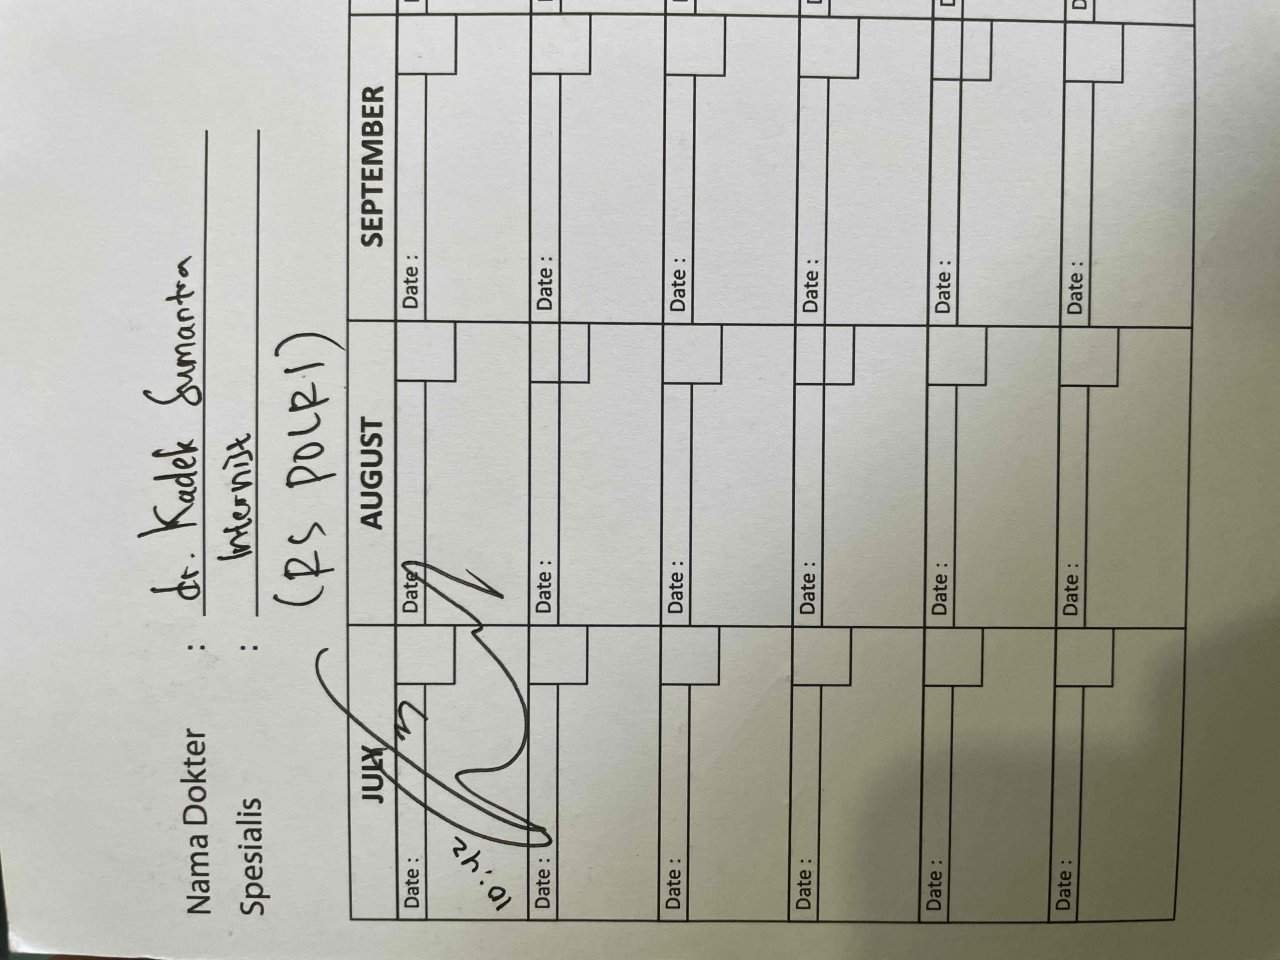 Nama Dokter : dr. Kadek Sumantra
Spesialis : Internist
(RS POLRI)
JULY AUGUST SEPTEMBER
Date : Date Date :
10:42
Date : Date : Date :
Date : Date : Date :
Date : Date : Date :
Date : Date : Date :
Date : Date : Date :